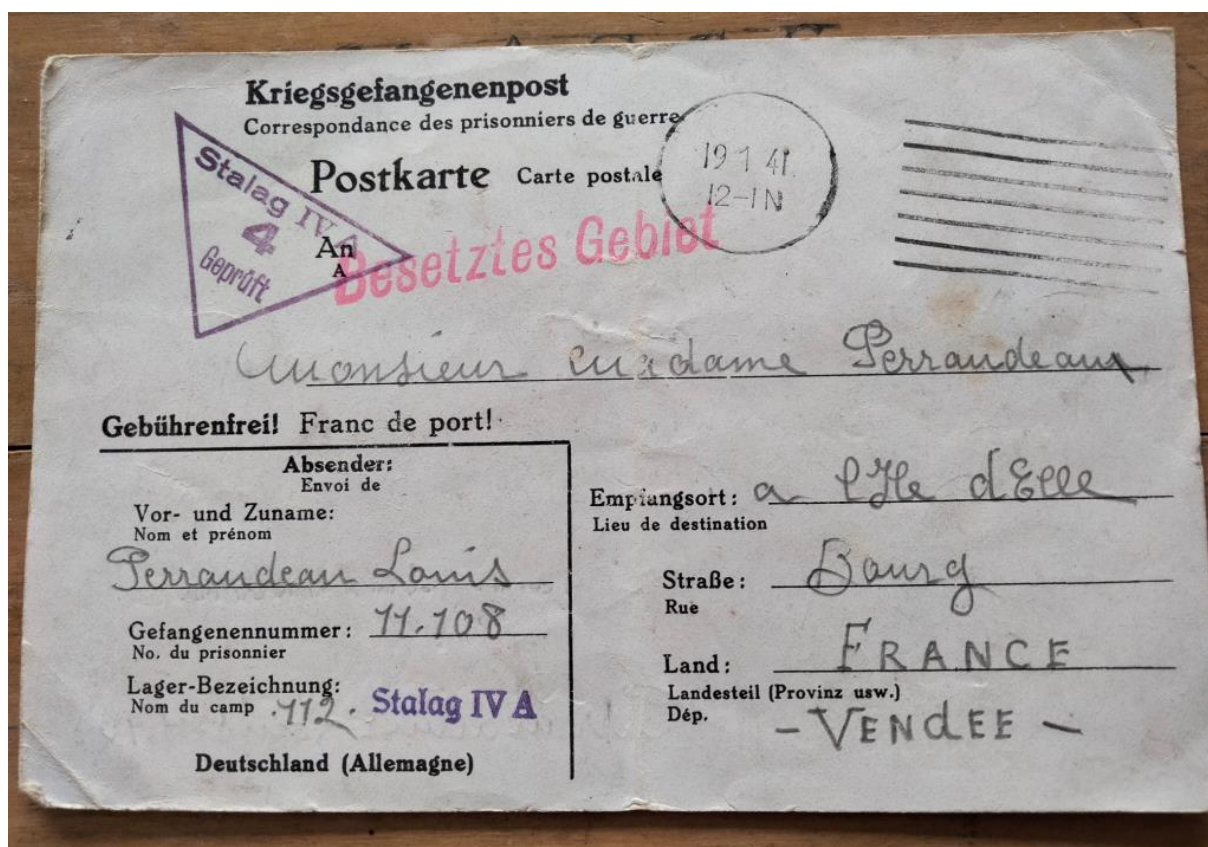 Kriegsgefangenenpost
Correspondance des prisonniers de guerre
Postkarte Carte postale
19 1 41
12-1N
Stalag IV A
4
Geprüft
An
A
Besetztes Gebiet
Monsieur Madame Perraudeau
Gebührenfrei! Franc de port!
Absender:
Envoi de
Vor- und Zuname:
Nom et prénom
Perraudeau Louis
Gefangenennummer: 11.108
No. du prisonnier
Lager-Bezeichnung:
Nom du camp .112. Stalag IV A
Deutschland (Allemagne)
Empfangsort: a l'Ile d'Elle
Lieu de destination
Straße: Bourg
Rue
Land: FRANCE
Landesteil (Provinz usw.)
Dép. - VENdEE -